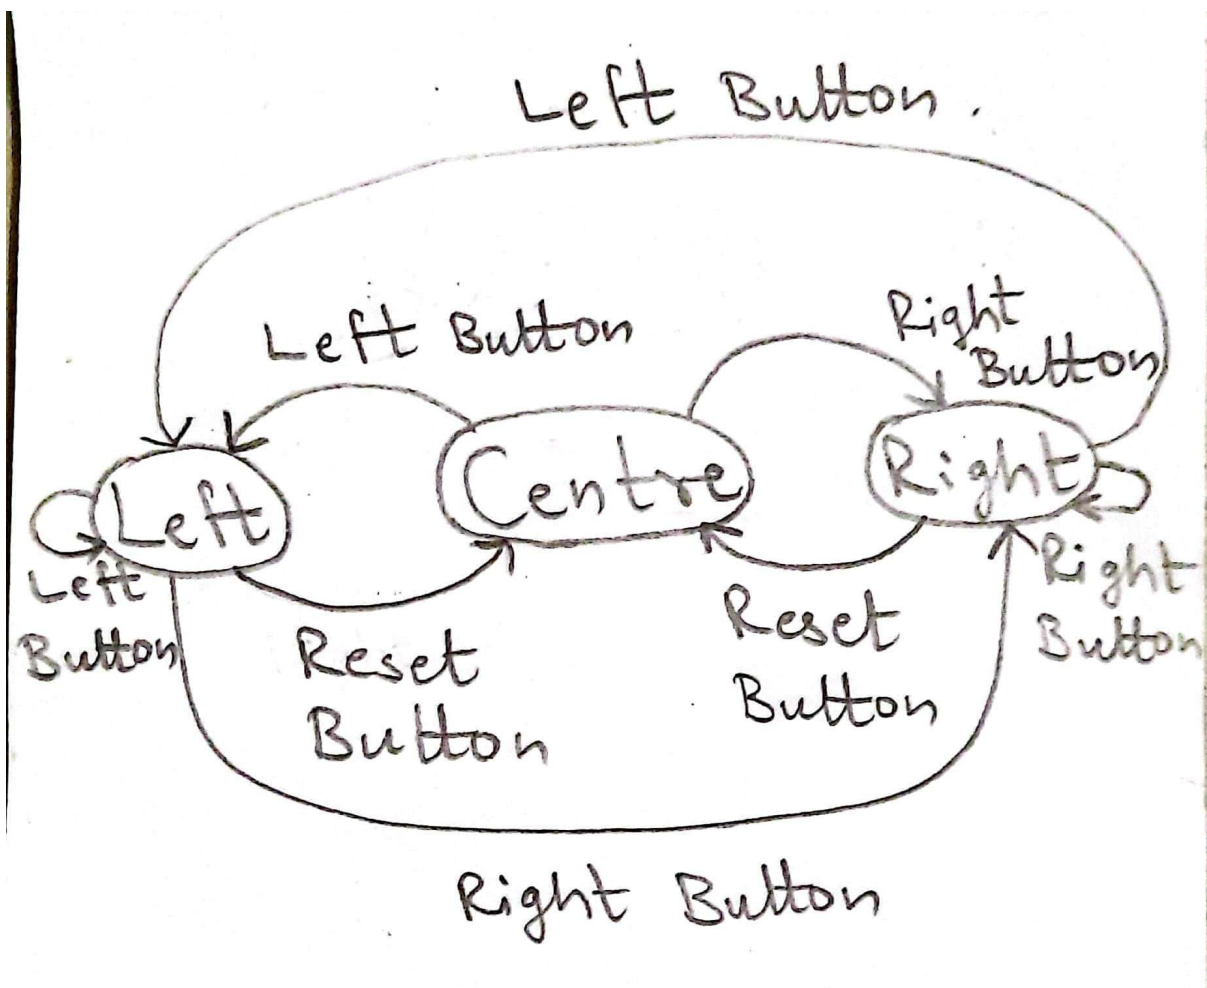 Left Button.
Left Button
Right
Button
Left
Centre
Right
Left
Button
Reset
Button
Reset
Button
Right
Button
Right Button